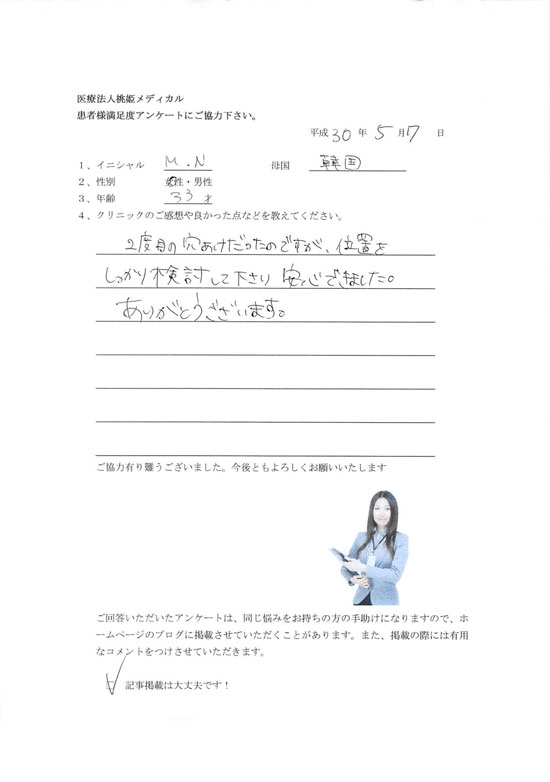 医療法人桃姫メディカル
患者様満足度アンケートにご協力下さい。
平成 30 年 5 月 7 日
1、イニシャル M.N 母国 韓国
2、性別 女性・男性
3、年齢 33才
4、クリニックのご感想や良かった点などを教えてください。
2度目の穴あけだったのですが、位置を
しっかり検討して下さり 安心できました。
ありがとうございます。
ご協力有り難うございました。今後ともよろしくお願いいたします
ご回答いただいたアンケートは、同じ悩みをお持ちの方の手助けになりますので、ホ
ームページのブログに掲載させていただくことがあります。また、掲載の際には有用
なコメントをつけさせていただきます。
□ 記事掲載は大丈夫です！